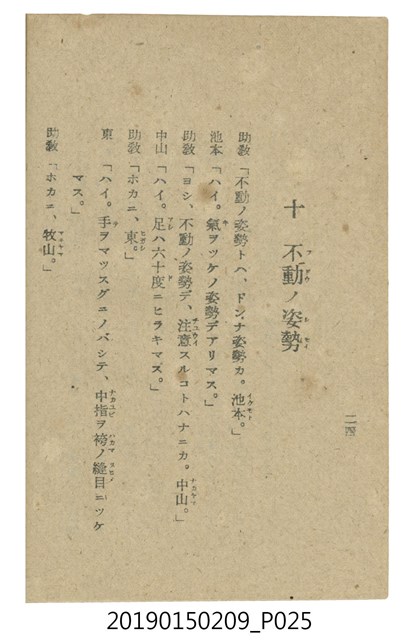 十 不動ノ姿勢
助教「不動ノ姿勢トハ、ドンナ姿勢カ。池本。」
池本「ハイ。氣ヲツケノ姿勢デアリマス。」
助教「ヨシ、不動ノ姿勢デ、注意スルコトハナニカ。中山。」
中山「ハイ。足ハ六十度ニヒラキマス。」
助教「ホカニ、東。」
東「ハイ。手ヲマッスグニノバシテ、中指ヲ袴ノ縫目ニツケ
マス。」
助教「ホカニ、牧山。」
二四
20190150209_P025